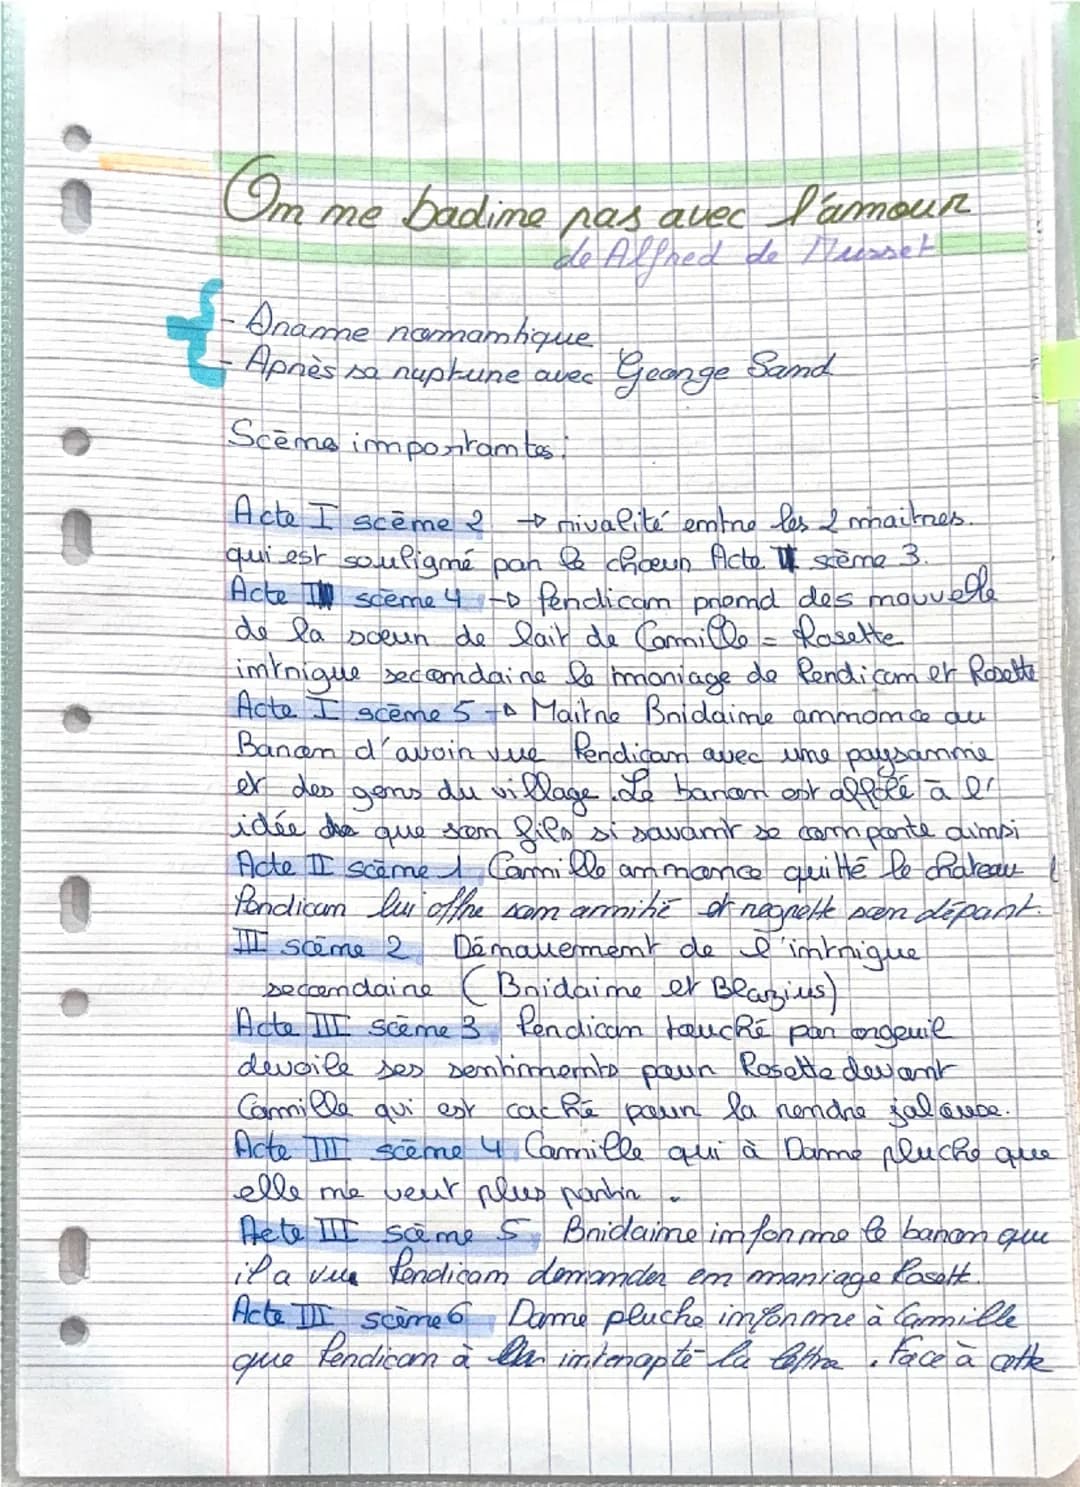 On ne badine pas avec l'amour
de Alfred de Musset
- Drame romantique
- Après sa rupture avec George Sand
Scène importantes :
Acte I scène 2 → rivalité entre les 2 maitres.
qui est souligné par le choeur Acte I scène 3.
Acte I scène 4 → Perdican prend des nouvelle
de la soeur de lait de Camille = Rosette
intrigue secondaire le mariage de Perdican et Rosette
Acte I scène 5 → Maitre Bridaine annonce au
Baron d'avoir vue Perdican avec une paysanne
et des gens du village. Le baron est affolé à l'
idée que son fils si savant se comporte ainsi
Acte II scène 1 Camille annonce quitté le chateau
Perdican lui offre son amitié et regrette son départ.
III scène 2 Dénouement de l'intrigue
secondaire (Bridaine et Blazius)
Acte III scène 3 Perdican touché par orgeuil
devoile ses sentiments pour Rosette devant
Camille qui est caché pour la rendre jalouse.
Acte III scène 4 Camille qui à Dame pluche que
elle ne veut plus partir.
Acte III scène 5 Bridaine informe le baron que
il a vue Perdican demander en mariage Rosett.
Acte III scène 6 Dame pluche informe à Camille
que Perdican à interapté la lettre. Face à cette